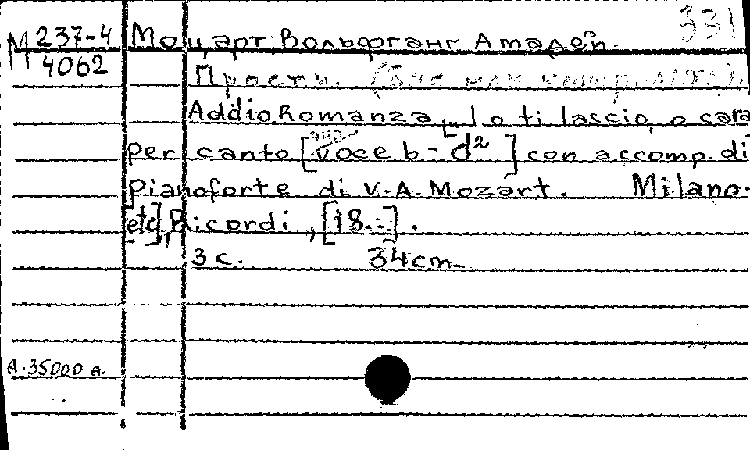 331
М 237-4 Моцарт Вольфганг Амадей.
4062
Прости.
Addio Romanza „Io ti lascio, o cara
per canto [voce b - d² ] con accomp. di
pianoforte di V.-A. Mozart. Milano-
[etc], Ricordi, [18..].
3 c. 34 cm.
А-35000 а.